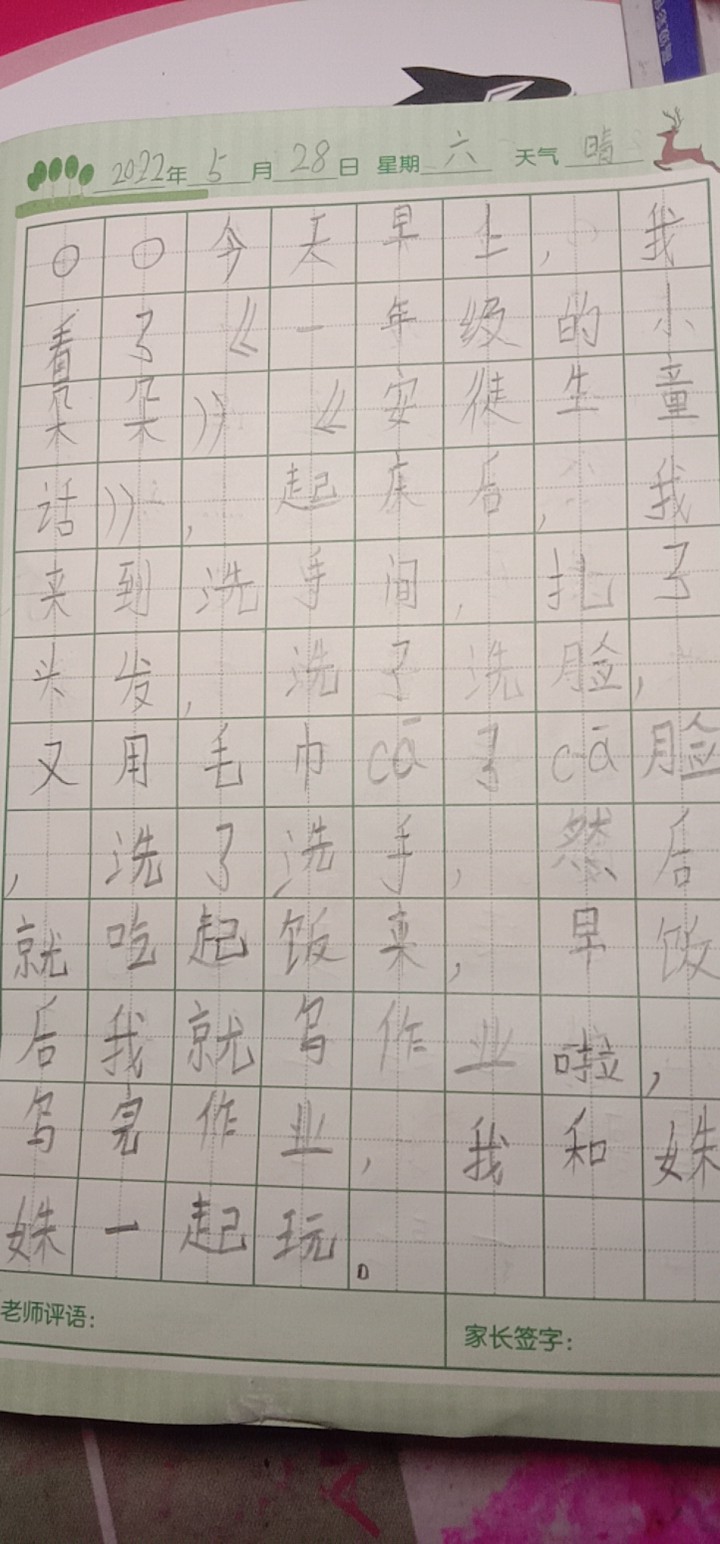 2022年5月28日 星期六 天气晴
○○今天早上，我
看了《一年级的小
朵朵》《安徒生童
话》，起床后，我
来到洗手间，扎了
头发，洗了洗脸，
又用毛巾cā了cā脸
，洗了洗手，然后
就吃起饭来，早饭
后我就写作业啦，
写完作业，我和妹
妹一起玩。
老师评语：
家长签字：